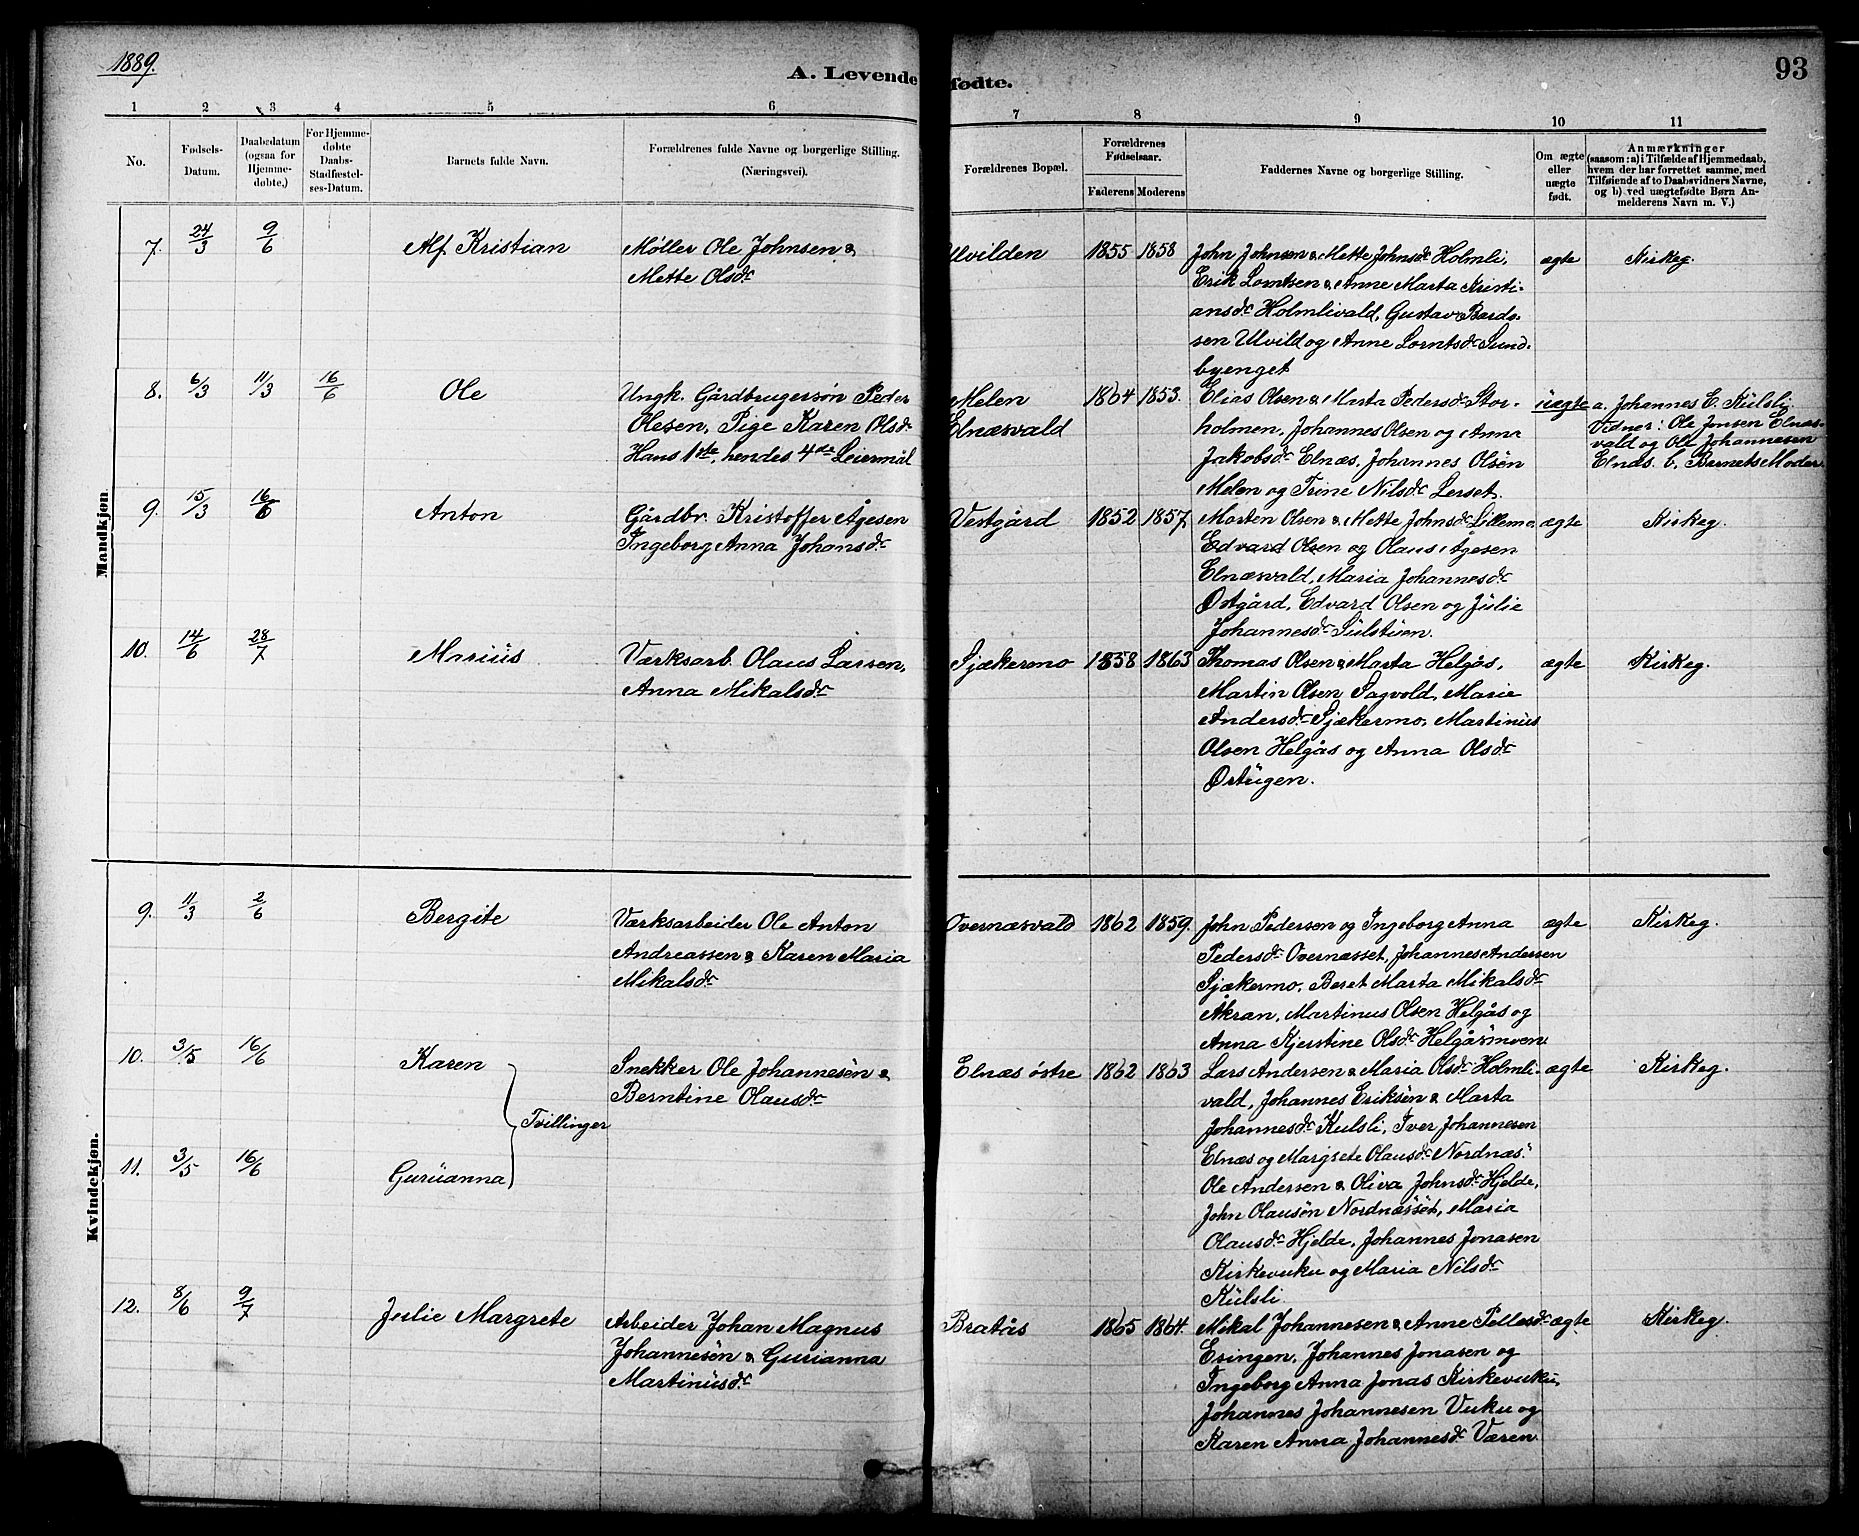 1889.
A. Levende fødte.
93
1 2 3 4 5 6 7 8 9 10 11
No.
Fødsels-
Datum.
Daabsdatum
(ogsaa for
Hjemme-
døbte,)
For Hjemme-
døbte
Daabs-
Stadfæstel-
ses-Datum.
Barnets fulde Navn.
Forældrenes fulde Navne og borgerlige Stilling.
(Næringsvei).
Forældrenes Bopæl.
Forældrenes
Fødselsaar.
Faderens Moderens
Faddernes Navne og borgerlige Stilling.
Om ægte
eller
uægte
født.
Anmærkninger
(saasom: a) i Tilfælde af Hjemmedaab,
hvem der har forrettet samme, med
Tilføiende af to Daabsvidners Navne,
og b) ved uægtefødte Børn An-
melderens Navn m. V.)
Mandkjøn.
7. 24/3 9/6 Alf Kristian
Møller Ole Johnsen &
Mette Olsdr
Ulvilden 1855 1858
John Johnsen & Mette Johnsdr Holmli,
Erik Lorntsen & Anne Marta Kristi-
ansdr Holmlivald, Gustav Bards-
sen Ulvild og Anne Lorntsdr Sund-
byenget
ægte Kirkeg.
8. 6/3 11/3 16/6 Ole
Ungk. Gårdbrugersøn Peder
Olesen, Pige Karen Olsdr
Hans 1ste, hendes 4de Leiermål
Melen
Elnæsvald
1864 1853.
Elias Olsen & Marta Pedersdr Stor-
holmen, Johannes Olsen og Anna
Jakobsdr Elnæs, Johannes Olsen
Melen og Trine Nilsdr Lerset.
uægte
a. Johannes E. Külsli
Vidner: Ole Jonsen Elnæs-
vald og Ole Johannesen
Elnæs. b. Barnets Moder
9. 15/3 16/6 Anton
Gårdbr. Kristoffer Ågesen
Ingeborg Anna Johansdr
Vestgård 1852 1857
Morten Olsen & Mette Johnsdr Lillemo
Edvard Olsen og Olaus Ågesen
Elnæsvald, Maria Johannesdr
Østgård, Edvard Olsen og Jülie
Johannesdr Sülstuen.
ægte Kirkeg.
10. 14/6 28/7 Mariüs
Værksarb. Olaus Larsen,
Anna Mikalsdr
Sjækermo 1858 1863
Thomas Olsen & Marta Helgås,
Martin Olsen Sagvold, Marie
Andersdr Sjækermo, Martinus
Olsen Helgås og Anna Olsdr
Østügen.
ægte Kirkeg.
Kvindekjøn.
9. 11/3 2/6 Bergite
Værksarbeider Ole Anton
Andreassen & Karen Maria
Mikalsdr
Overnæsvald 1862 1859.
John Pedersen og Ingeborg Anna
Pedersdr Overnæsset, Johannes Andersen
Sjækermo, Beret Marta Mikalsdr
Åkran, Martinus Olsen Helgås og
Anna Kjerstine Olsdr Helgåsmoen
ægte Kirkeg.
10. 3/5 16/6 Karen
Tvillinger
Snekker Ole Johannesen &
Berntine Olausdr
Elnæs østre 1862 1863
Lars Andersen & Maria Olsdr Holmli-
vald, Johannes Eriksen & Marta
Johannesdr Kulsli, Iver Johannesen
Elnæs og Margrete Olausdr Nordnæs.
ægte Kirkeg.
11. 3/5 16/6 Guruanna
Ole Andersen & Oliva Johnsdr Hjelde,
John Olausen Nordnæsset, Maria
Olausdr Hjelde, Johannes Jonasen
Kirkevuku og Maria Nilsdr
Külsli.
12. 8/6 9/7 Julie Margrete
Arbeider Johan Magnus
Johannesen & Gurianna
Martinusdr
Bratås 1865 1864.
Mikal Johannesen & Anne Pellesdr
Esingen, Johannes Jonasen og
Ingeborg Anna Jonas Kirkevuku,
Johannes Johannesen Vuku og
Karen Anna Johannesdr Væren
ægte Kirkeg.